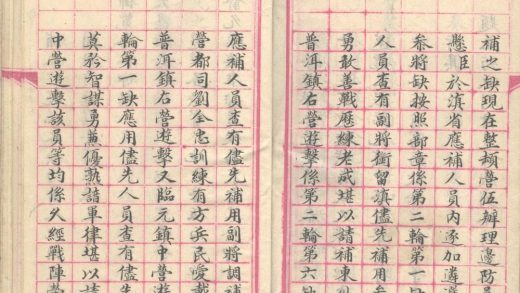 補之缺現在整頓營伍辦理邊防員
懸臣於滇省應補人員內逐加遴選
叅將缺按照部章係第二輪第一缺
人員查有副將銜留滇儘先補用叅
勇敢善戰歷練老成堪以請補東
普洱鎮右營遊擊係第二輪第六缺
應補人員查有儘先補用副將調補
營都司劉全忠訓練有方兵民愛戴
普洱鎮右營遊擊又臨元鎮中營遊
輪第一缺應用儘先人員查有儘先
莫矜智謀勇兼優熟諳軍律堪以請
中營遊擊該員等均係久經戰陣營